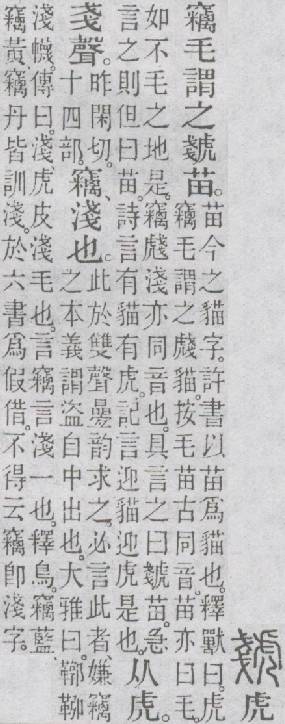 虦
虎
竊毛謂之虦苗。苗今之貓字。許書以苗爲貓也。釋獸曰。虎
竊毛謂之虦貓。按毛苗古同音。苗亦曰毛。
如不毛之地是。竊虦淺亦同音也。具言之曰虦苗。急
言之則但曰苗。詩言有貓有虎。記言迎貓迎虎是也。从虎。
戔聲。昨閑切。
十四部。竊、淺也。此於雙聲曡韵求之。必言此者、嫌竊
之本義謂盜自中出也。大雅曰。鞹鞃
淺幭。傳曰。淺、虎皮淺毛也。言竊言淺一也。釋鳥。竊藍
竊黃竊丹皆訓淺。於六書爲假借。不得云竊卽淺字。